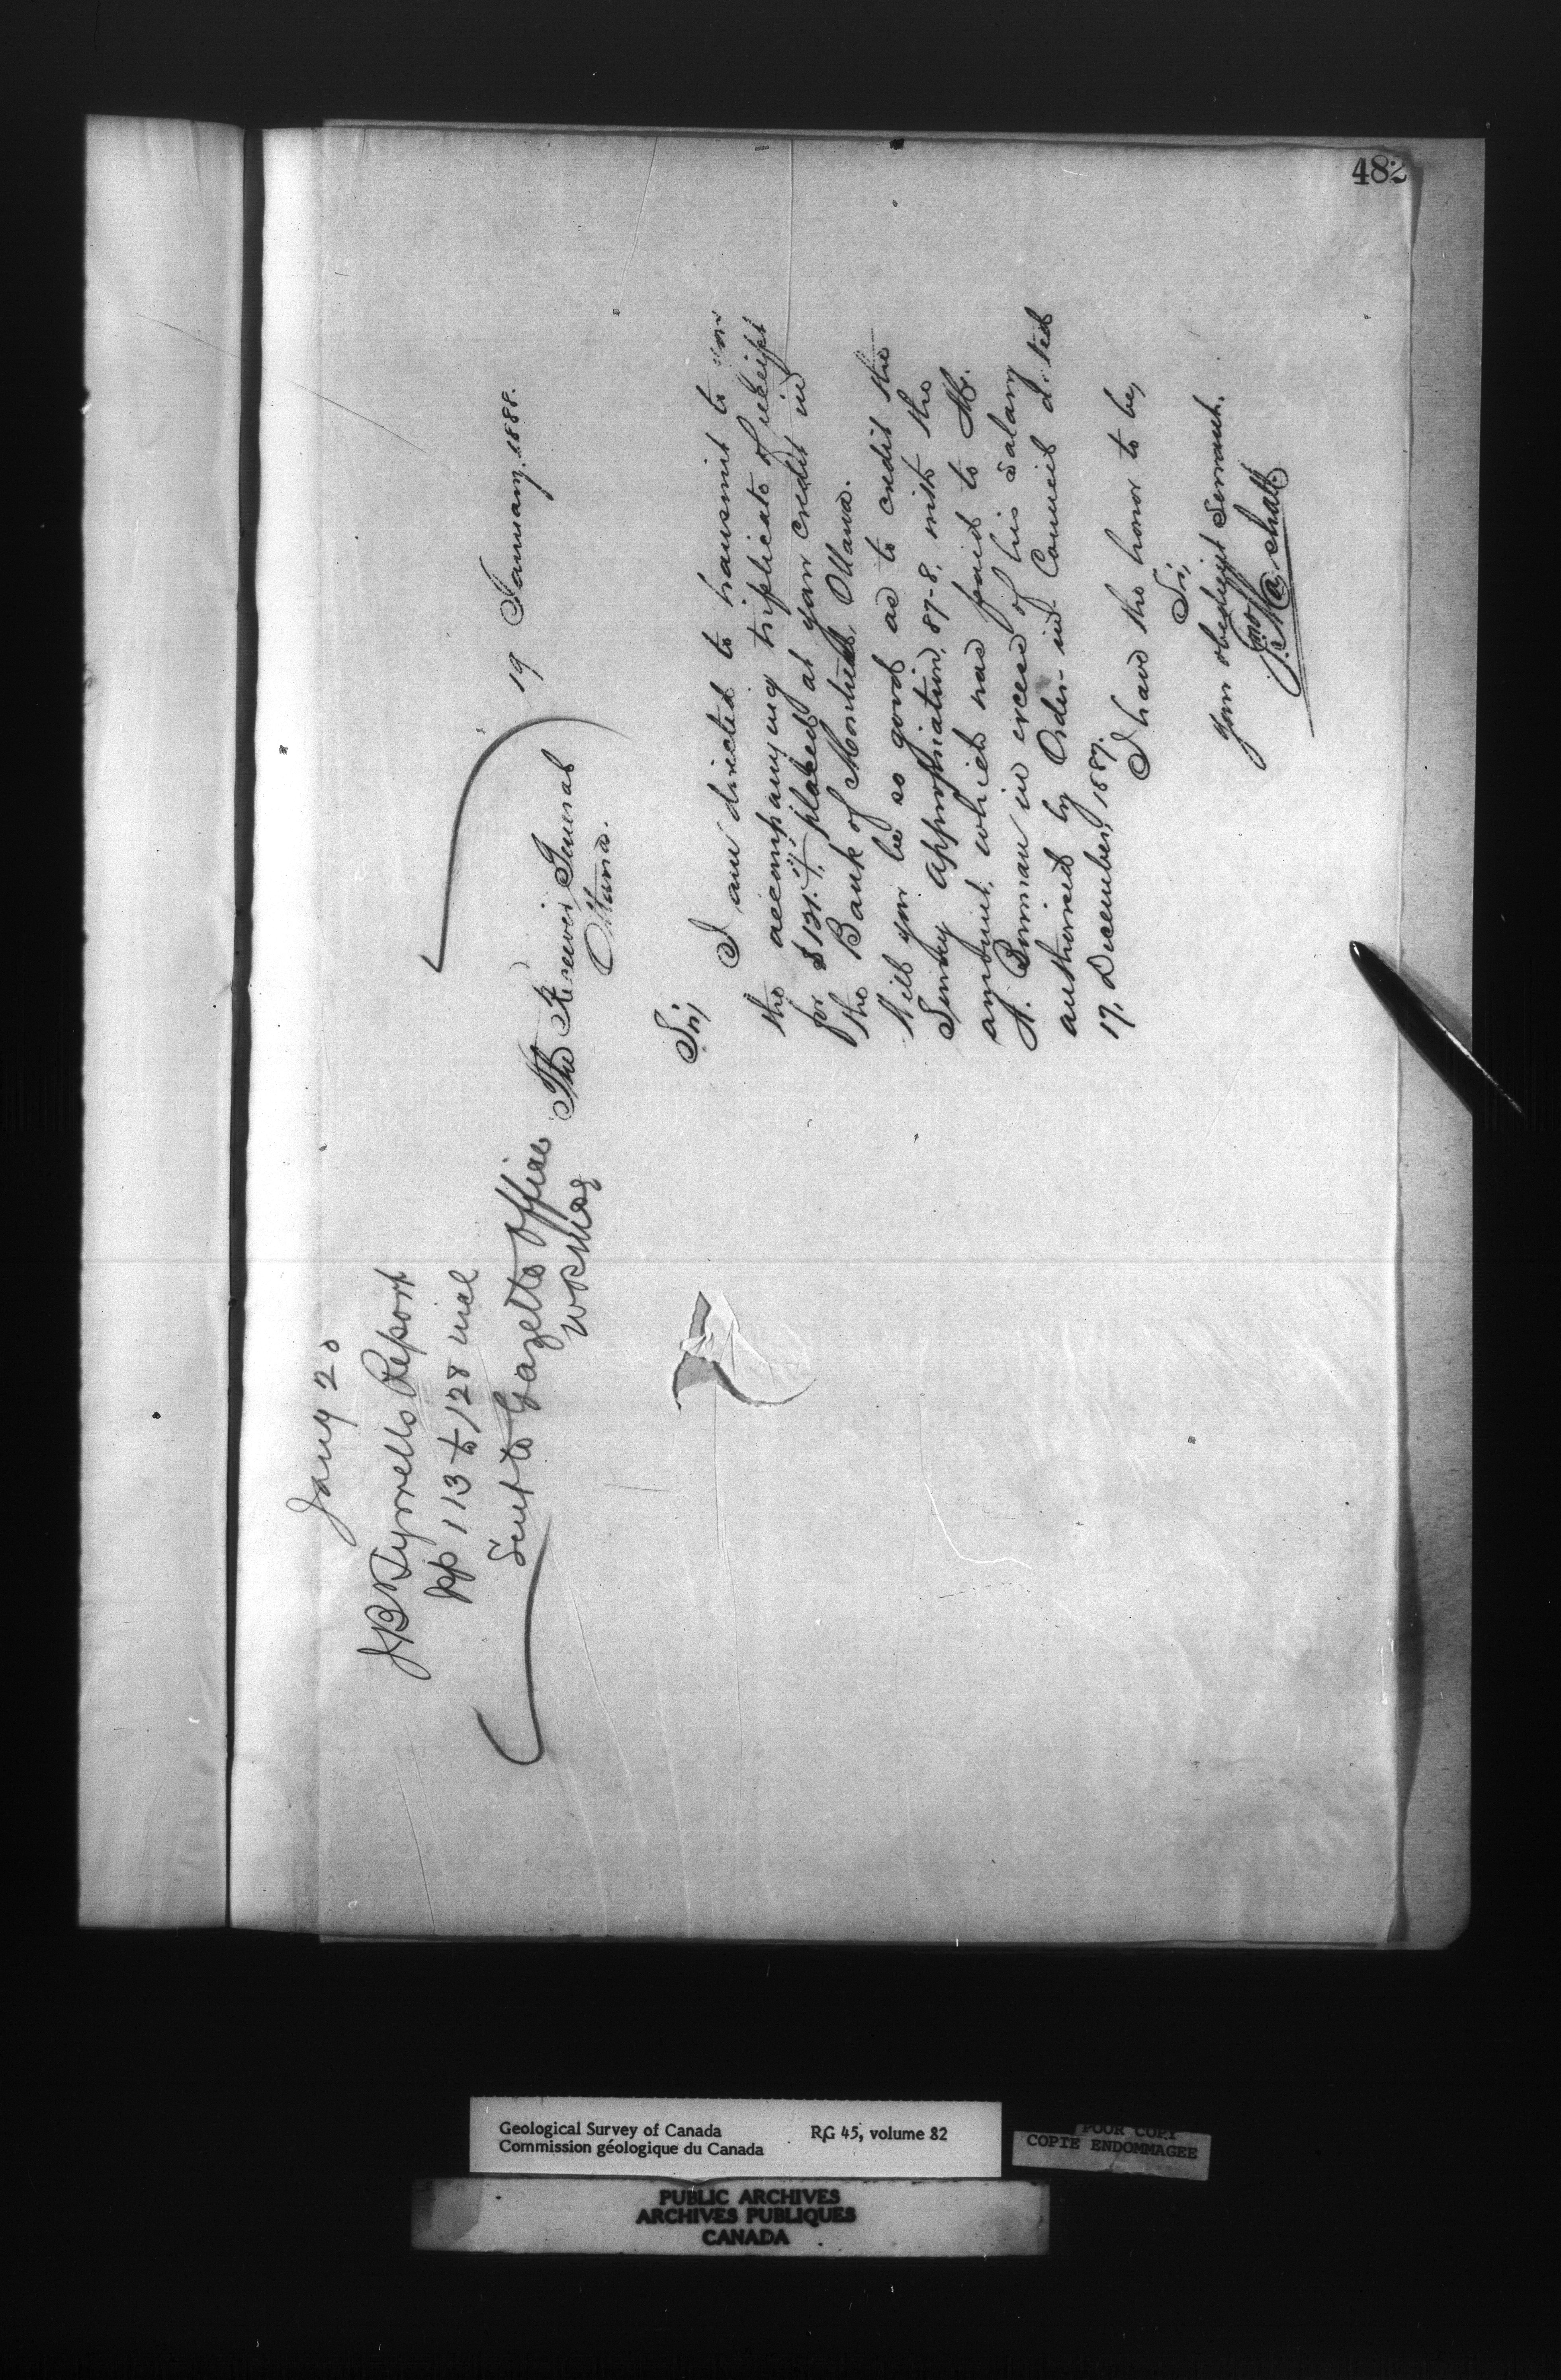 482
Jany 20
JB Tyrrells Report
pp 113 to 128 incl
Sent to Gazette Office
19 January. 1888.
The Receiver General
Ottawa.
Sir,
I am directed to transmit to you
the accompanying triplicate of receipt
for $131. placed at your credit in
the Bank of Montreal, Ottawa.
Will you be so good as to credit the
Survey Appropriation, 87-8, with the
amount, which was paid to Mr.
A. Bowman in excess of his salary
authorised by Order-in-Council dated
17, December, 1887.
I have the honor to be,
Sir,
Your obedient Servant.
Jno. Marshall
Geological Survey of Canada RG 45, volume 82
Commission géologique du Canada
POOR COPY
COPIE ENDOMMAGEE
PUBLIC ARCHIVES
ARCHIVES PUBLIQUES
CANADA